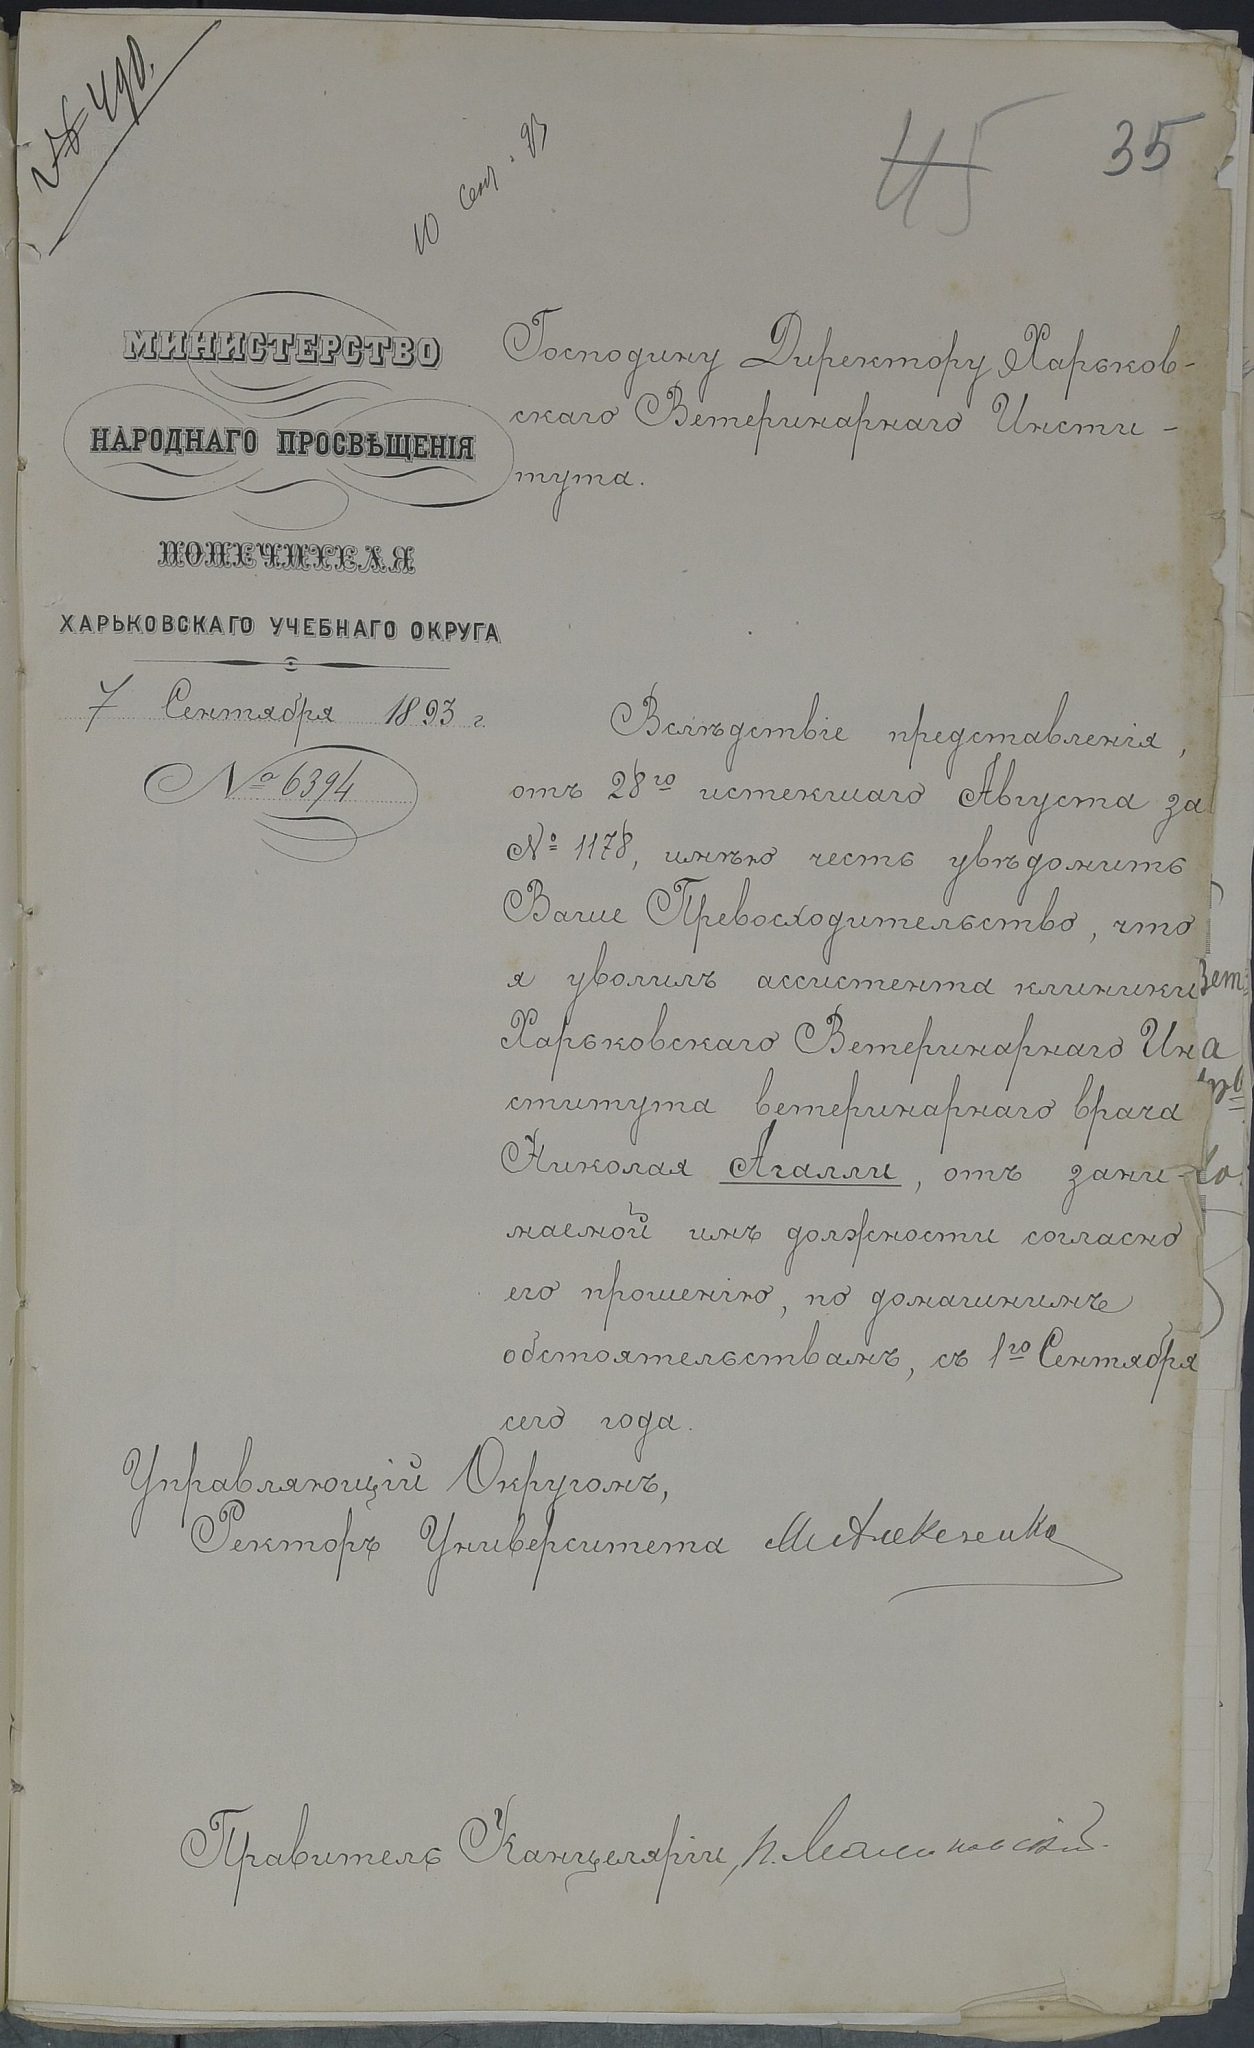 № 490.
10 сент. 93
45 35
МИНИСТЕРСТВО
НАРОДНАГО ПРОСВѢЩЕНІЯ
ПОПЕЧИТЕЛЯ
ХАРЬКОВСКАГО УЧЕБНАГО ОКРУГА
7 Сентября 1893 г.
№ 6394
Господину Директору Харьков-
скаго Ветеринарнаго Инсти-
тута.
Вслѣдствіе представленія,
отъ 28го истекшаго Августа за
№ 1178, имѣю честь увѣдомить
Ваше Превосходительство, что
я уволилъ ассистента клиники
Харьковскаго Ветеринарнаго Ин
ститута ветеринарнаго врача
Николая Агалли, отъ зани-
маемой имъ должности согласно
его прошенію, по домашнимъ
обстоятельствамъ, съ 1го Сентября
сего года.
Управляющій Округомъ,
Ректоръ Университета М Алексеенко
Правитель Канцеляріи,